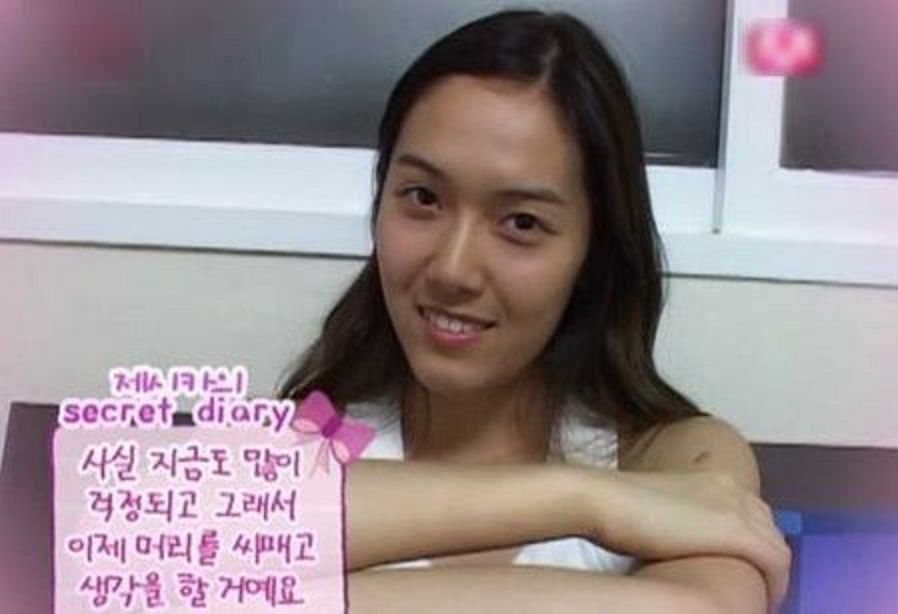 제시카의
secret diary
사실 지금도 많이
걱정되고 그래서
이제 머리를 싸매고
생각을 할 거예요